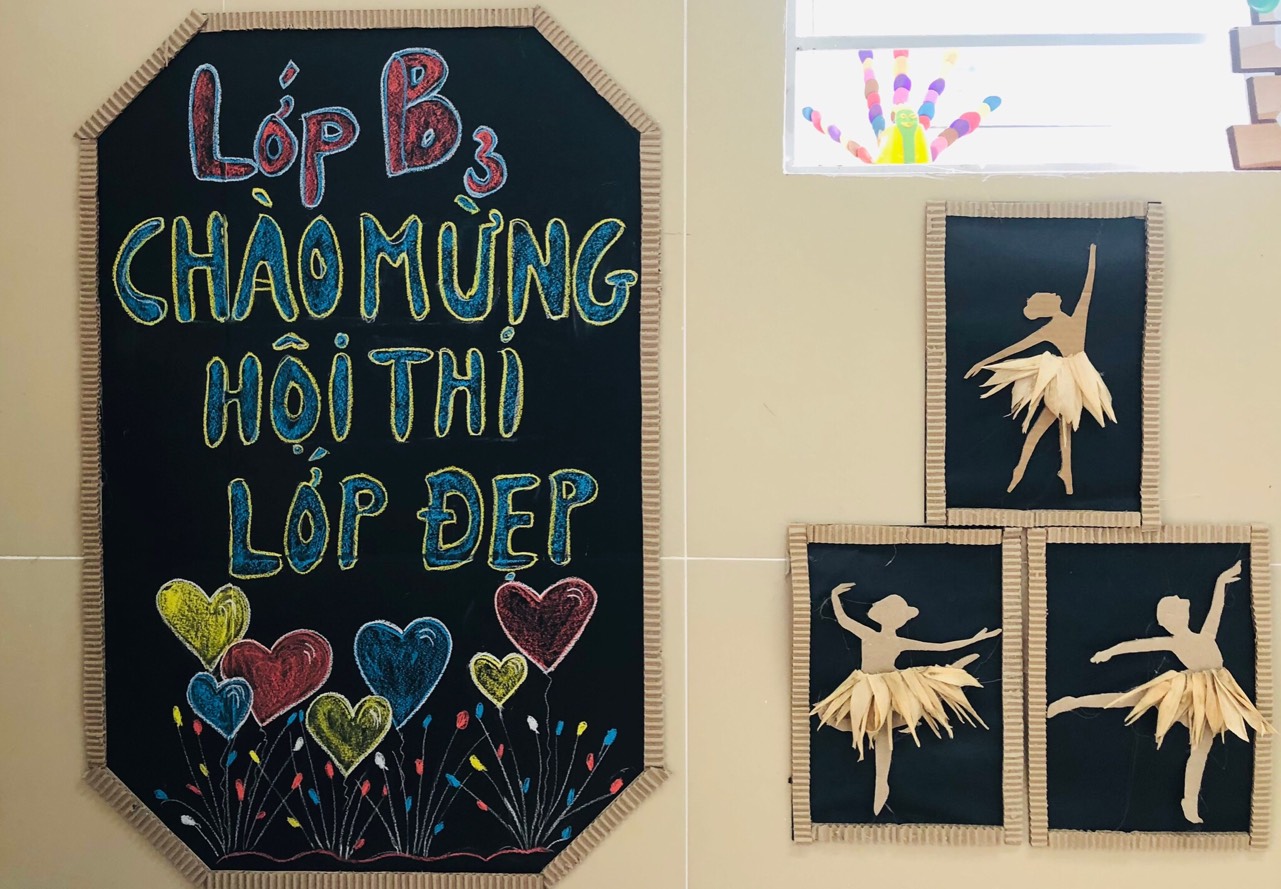 Lớp B3
CHÀO MỪNG
HỘI THI
LỚP ĐẸP